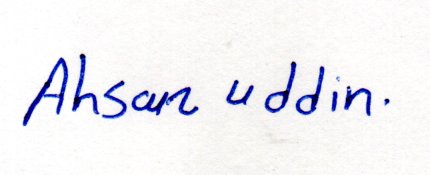 Ahsan uddin.